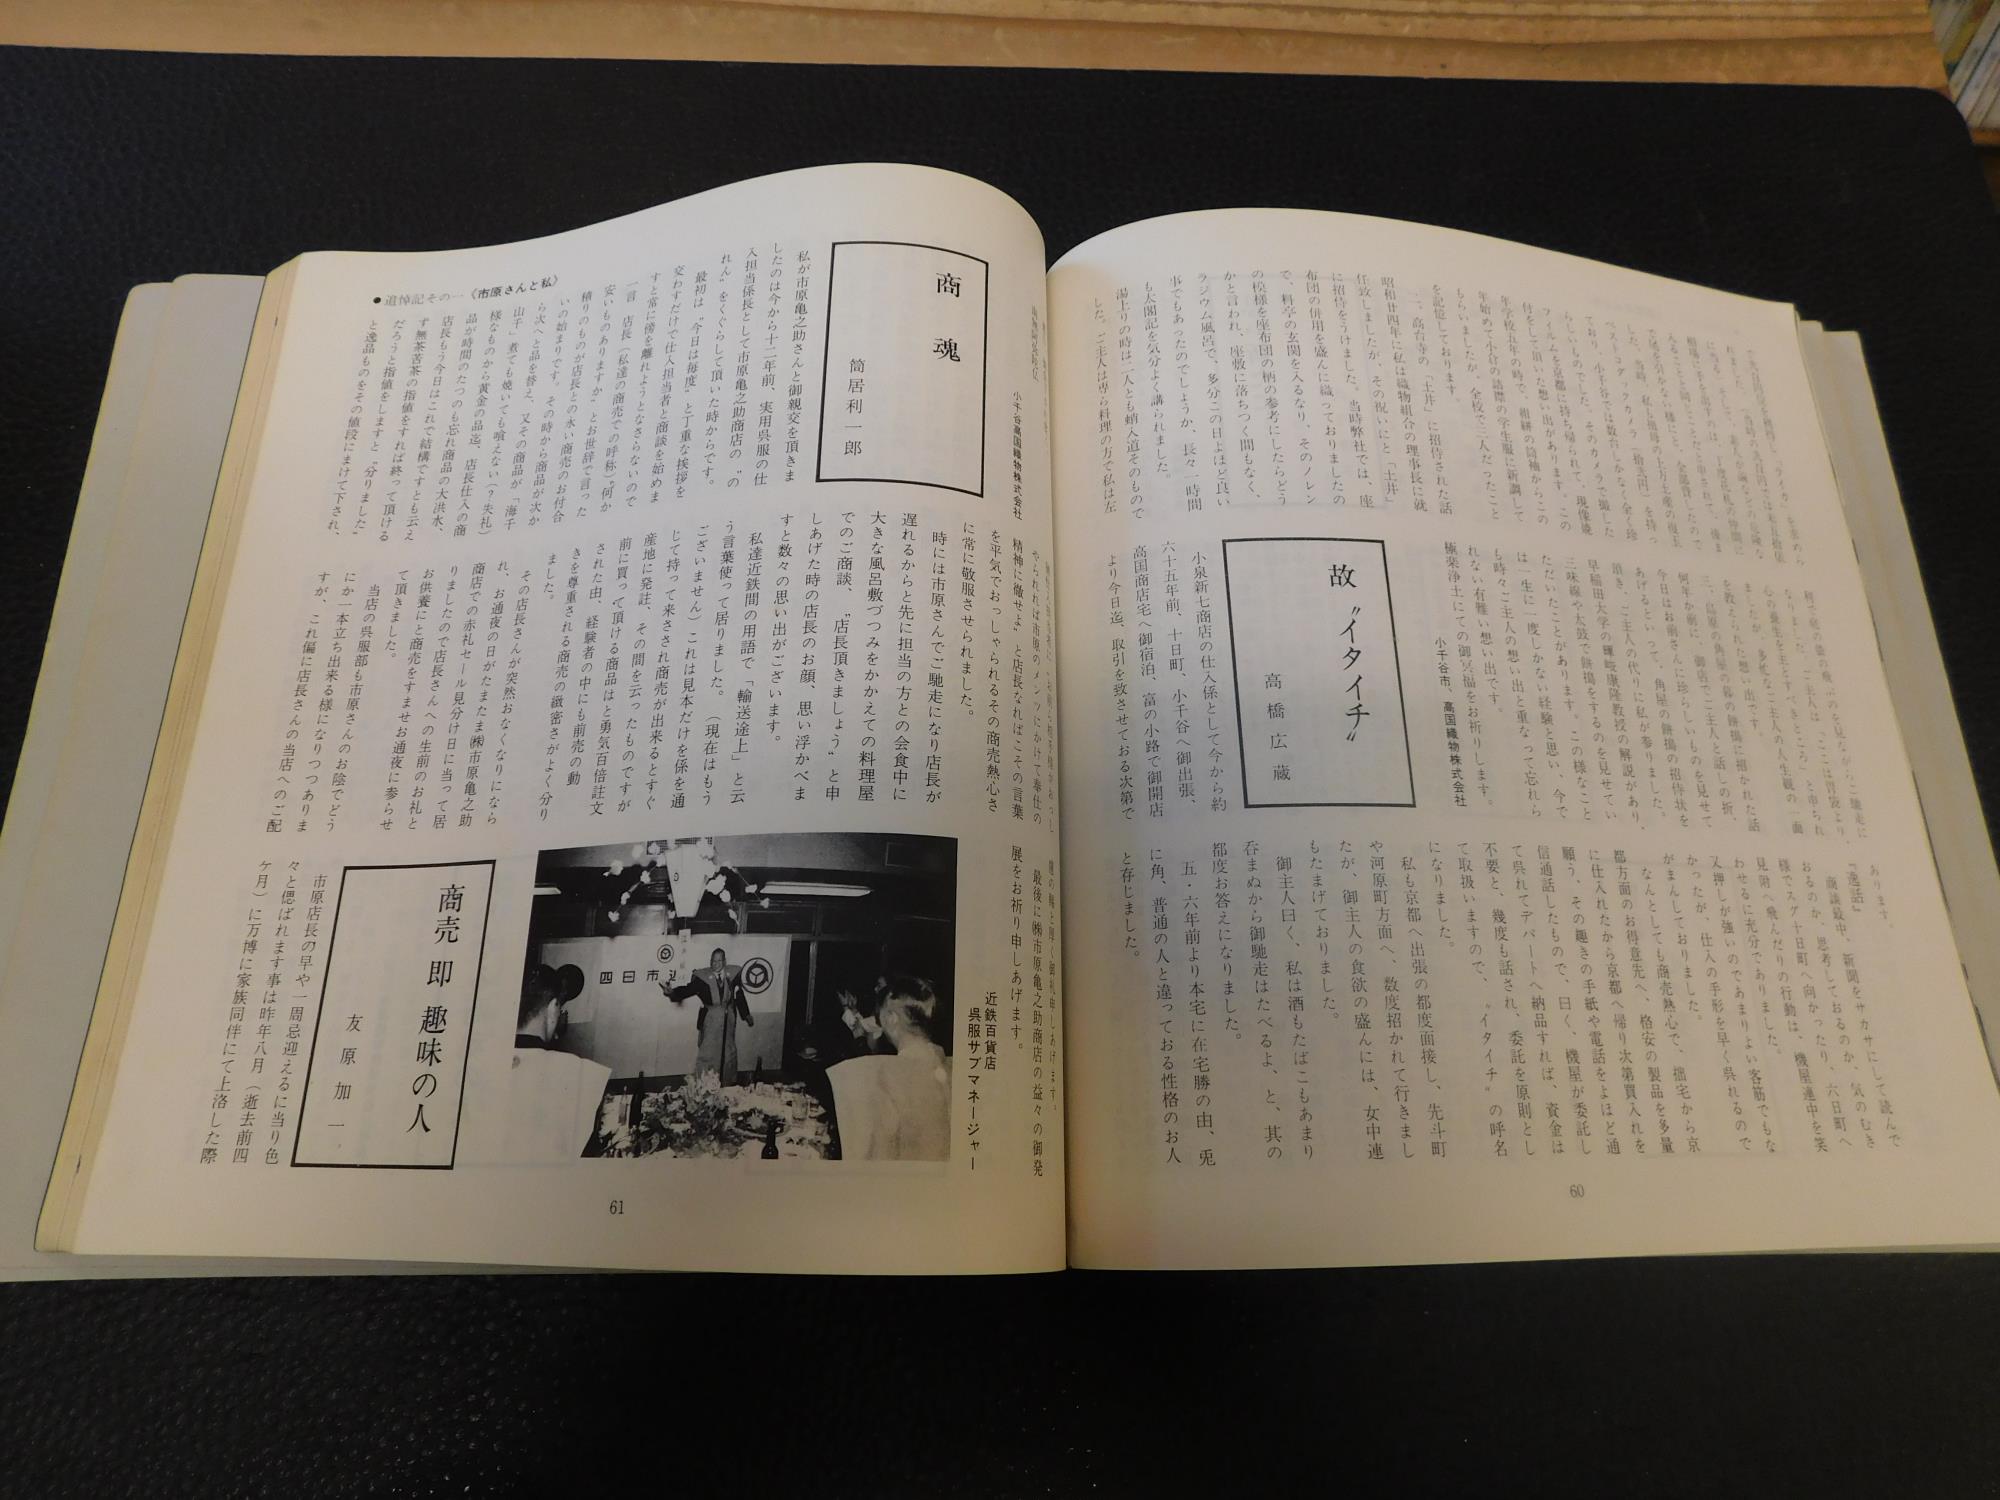 相場に手を出すのは、
ました。当時、私も祖母の上方土産の
ベストコダックカメラ（拾五円）を持っ
ており、小千谷では数台しかなく全く珍
らしいものでした。そのカメラで撮した
フィルムを京都に持ち帰られて、現像焼
付をして頂いた想い出があります。この
年学校五年の時で、絹絣の筒袖からこの
年始めて小合の詰襟の学生服に新調して
もらいましたが、全校で二人だったこと
を記憶しております。
二、高台寺の「土井」に招待された話
昭和廿四年に私は織物組合の理事長に就
任致しましたが、その祝いにと「土井」
に招待をうけました。当時弊社では、座
布団の併用を盛んに織っておりましたの
で、料亭の玄関を入るなり、そのノレン
の模様を座布団の柄の参考にしたらどう
かと言われ、座敷に落ちつく間もなく、
ラジウム風呂で、多分この日よほど良い
事でもあったのでしょうか、長々一時間
も太閤記を気分よく講られました。
湯上りの時は二人とも蛸入道そのもので
した。ご主人は専ら料理の方で私は左
なりました。ご主人は「ここは背景より、
心の養生を主とすべきところ」と申られ
ましたが、多忙なご主人の人生観の一面
を教えられた想い出です。
三、島原の角屋の暮の餅搗に招かれた話
何年か前に、御店でご主人と話しの折、
今日はお前さんに珍らしいものを見せて
あげるといって、角屋の餅搗の招待状を
頂き、ご主人の代りに私が参りました。
早稲田大学の暉峻康隆教授の解説があり、
三味線や太鼓で餅搗をするのを見せてい
ただいたことがあります。この様なこと
は一生に一度しかない経験と思い、今で
も時々ご主人の想い出と重なって忘れら
れない有難い想い出です。
極楽浄土にての御冥福をお祈りします。
小千谷市、高国織物株式会社
故〝イタイチ〟
高橋広蔵
小泉新七商店の仕入係として今から約
六十五年前、十日町、小千谷へ御出張、
高国商店宅へ御宿泊、富の小路で御開店
より今日迄、取引を致させておる次第で
あります。
『逸話』
商談最中、新聞をサカサにして読んで
おるのか、思考しておるのか、気のむき
様でスグ十日町へ向かったり、六日町へ
見附へ飛んだりの行動は、機屋連中を笑
わせるに充分でありました。
又押しが強いのであまりよい客筋でもな
かったが、仕入の手形を早く呉れるので
がまんしておりました。
なんとしても商売熱心で、拙宅から京
都方面のお得意先へ、格安の製品を多量
に仕入れたから京都へ帰り次第買入れを
願う、その趣きの手紙や電話をよほど通
信通話したもので、曰く、機屋が委託し
て呉れてデパートへ納品すれば、資金は
不要と、幾度も話され、委託を原則とし
て取扱いますので、〝イタイチ〟の呼名
になりました。
私も京都へ出張の都度面接し、先斗町
や河原町方面へ、数度招かれて行きまし
たが、御主人の食欲の盛んには、女中連
もたまげておりました。
御主人曰く、私は酒もたばこもあまり
呑まぬから御馳走はたべるよ、と、其の
都度お答えになりました。
五・六年前より本宅に在宅勝の由、兎
に角、普通の人と違っておる性格のお人
と存じました。
60
小千谷高国織物株式会社
商魂
筒居利一郎
私が市原亀之助さんと御親交を頂きま
したのは今から十二年前、実用呉服の仕
入担当係長として市原亀之助商店の〝の
れん〟をくぐらして頂いた時からです。
最初は〝今日は毎度〟と丁重な挨拶を
交わすだけで仕入担当者と商談を始めま
すと常に傍を離れようとなさらないので
一言　店長（私達の商売での呼称）何か
安いものありますか〟とお世辞で言った
積りのものが店長との永い商売のお付合
いの始まりです。その時から商品が次か
ら次へと品を替え、又その商品が「海千
山千」煮ても焼いても喰えない（？失礼）
様なものから黄金の品迄、店長仕入の商
品が時間のたつのも忘れ商品の大洪水、
店長もう今日はこれで結構ですとも云え
ず無茶苦茶の指値をすれば終って頂ける
だろうと指値をしますと〝分りました〟
と逸品ものをその値段にまけて下され、
●追悼記その一《市原さんと私》
やられれば市原のメンツにかけて奉仕の
精神に徹せよ〟と店長なればこその言葉
を平気でおっしゃられるその商売熱心さ
に常に敬服させられました。
時には市原さんでご馳走になり店長が
遅れるからと先に担当の方との会食中に
大きな風呂敷づつみをかかえての料理屋
でのご商談、〝店長頂きましょう〟と申
しあげた時の店長のお顔、思い浮かべま
すと数々の思い出がございます。
私達近鉄間の用語で「輸送途上」と云
う言葉使って居りました。（現在はもう
ございません）これは見本だけを係を通
じて持って来さされ商売が出来るとすぐ
産地に発註、その間を云ったものですが
前に買って頂ける商品はと勇気百倍註文
された由、経験者の中にも前売の動
きを尊重される商売の緻密さがよく分り
ました。
その店長さんが突然おなくなりになら
れ、お通夜の日がたまたま㈱市原亀之助
商店での赤札セール見分け日に当って居
りましたので店長さんへの生前のお礼と
お供養にと商売をすませお通夜に参らせ
て頂きました。
当店の呉服部も市原さんのお陰でどう
にか一本立ち出来る様になりつつありま
すが、これ偏に店長さんの当店へのご配
慮の賜と厚く御礼申しあげます。
最後に㈱市原亀之助商店の益々の御発
展をお祈り申しあげます。
近鉄百貨店
呉服サブマネージャー
四日市
商売即趣味の人
友原加一
市原店長の早や一周忌迎えるに当り色
々と偲ばれます事は昨年八月（逝去前四
ケ月）に万博に家族同伴にて上洛した際
61